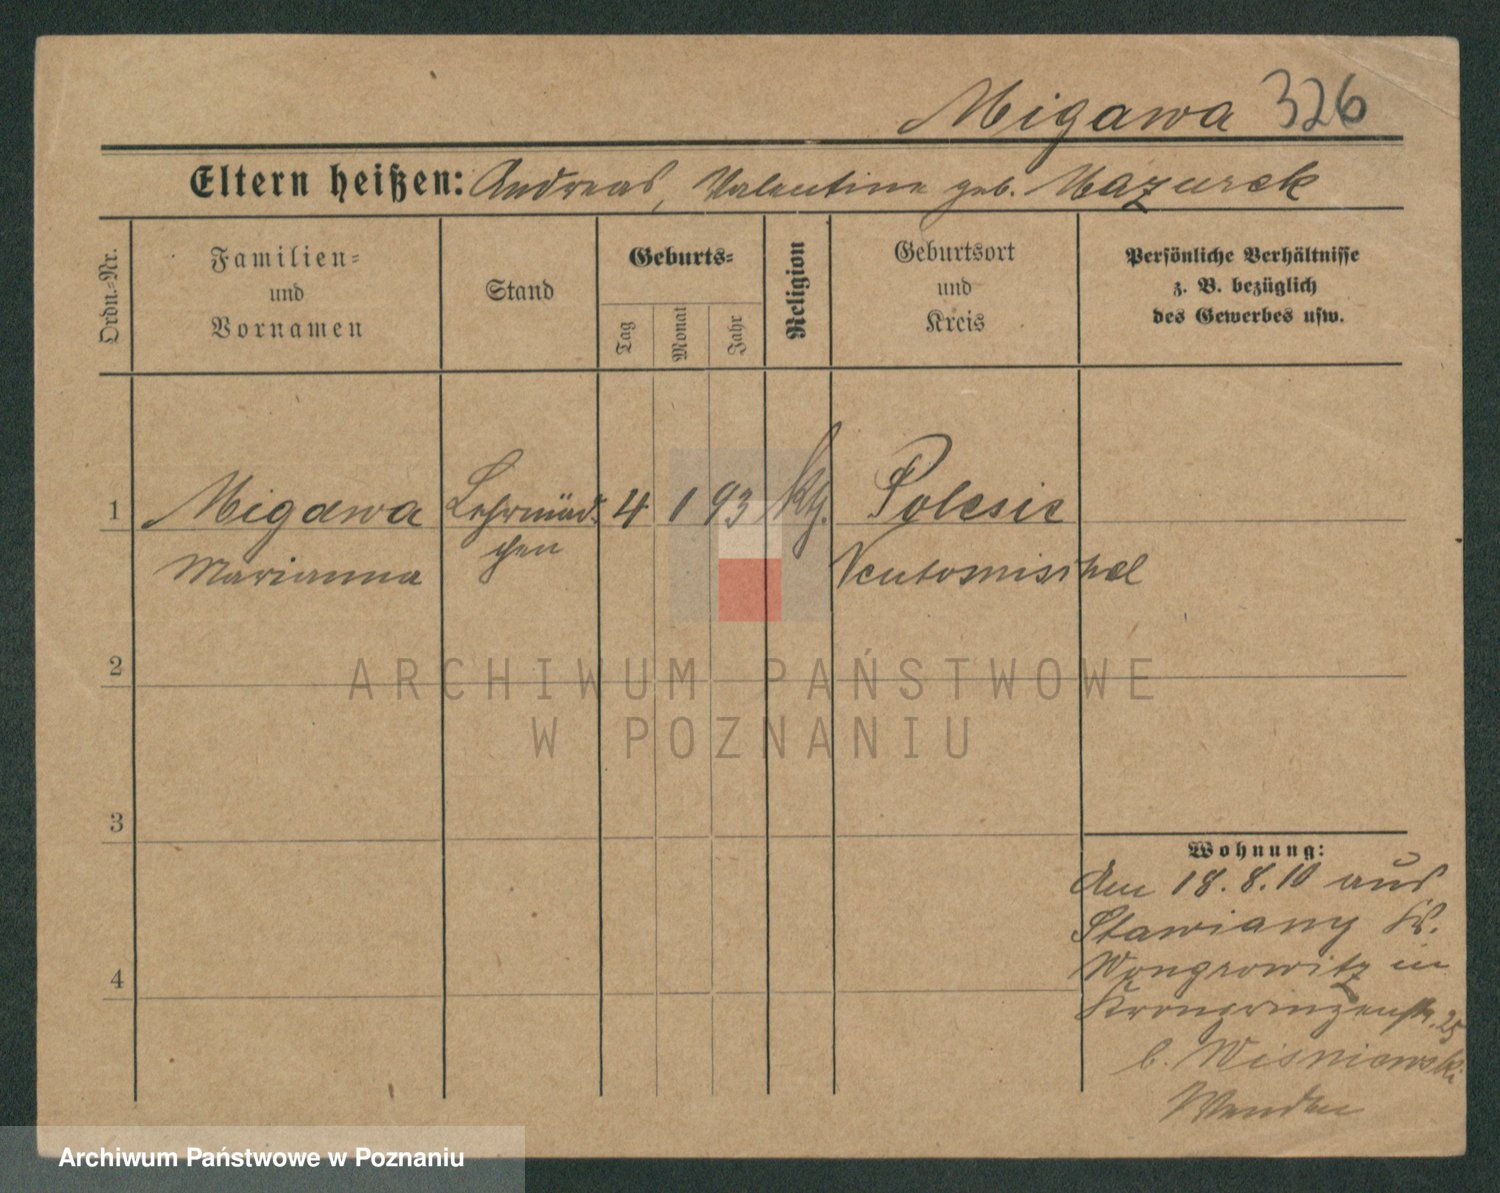 Migawa 326
Eltern heißen: Andreas, Valentine geb. Mazurek
Ordn.-Nr.
Familien-
und
Vornamen
Stand
Geburts-
Tag
Monat
Jahr
Religion
Geburtsort
und
Kreis
Persönliche Verhältnisse
z. B. bezüglich
des Gewerbes usw.
1 Migawa Lehrmäd- 4 1 93 kth. Polesie
Marianna chen Neutomischel
2
ARCHIWUM PAŃSTWOWE
W POZNANIU
3
Wohnung:
Am 18.8.10 aus
Stawiany Kr.
Wongrowitz in
Kronprinzenstr. 25
b. Wisniewski
4
Archiwum Państwowe w Poznaniu